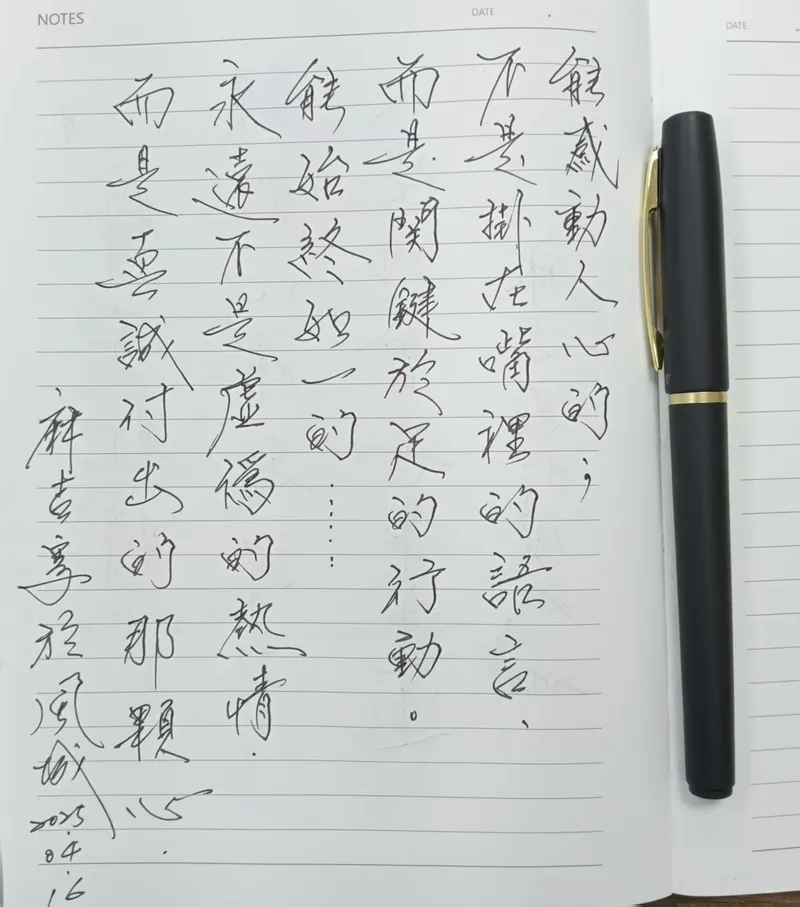 NOTES
DATE
DATE
能感動人心的，
不是掛在嘴裡的語言、
而是関鍵於足的行動。
能始終如一的……
永遠不是虛偽的熱情.
而是真誠付出的那顆心.
麻吉寫於風城
2025.04.16